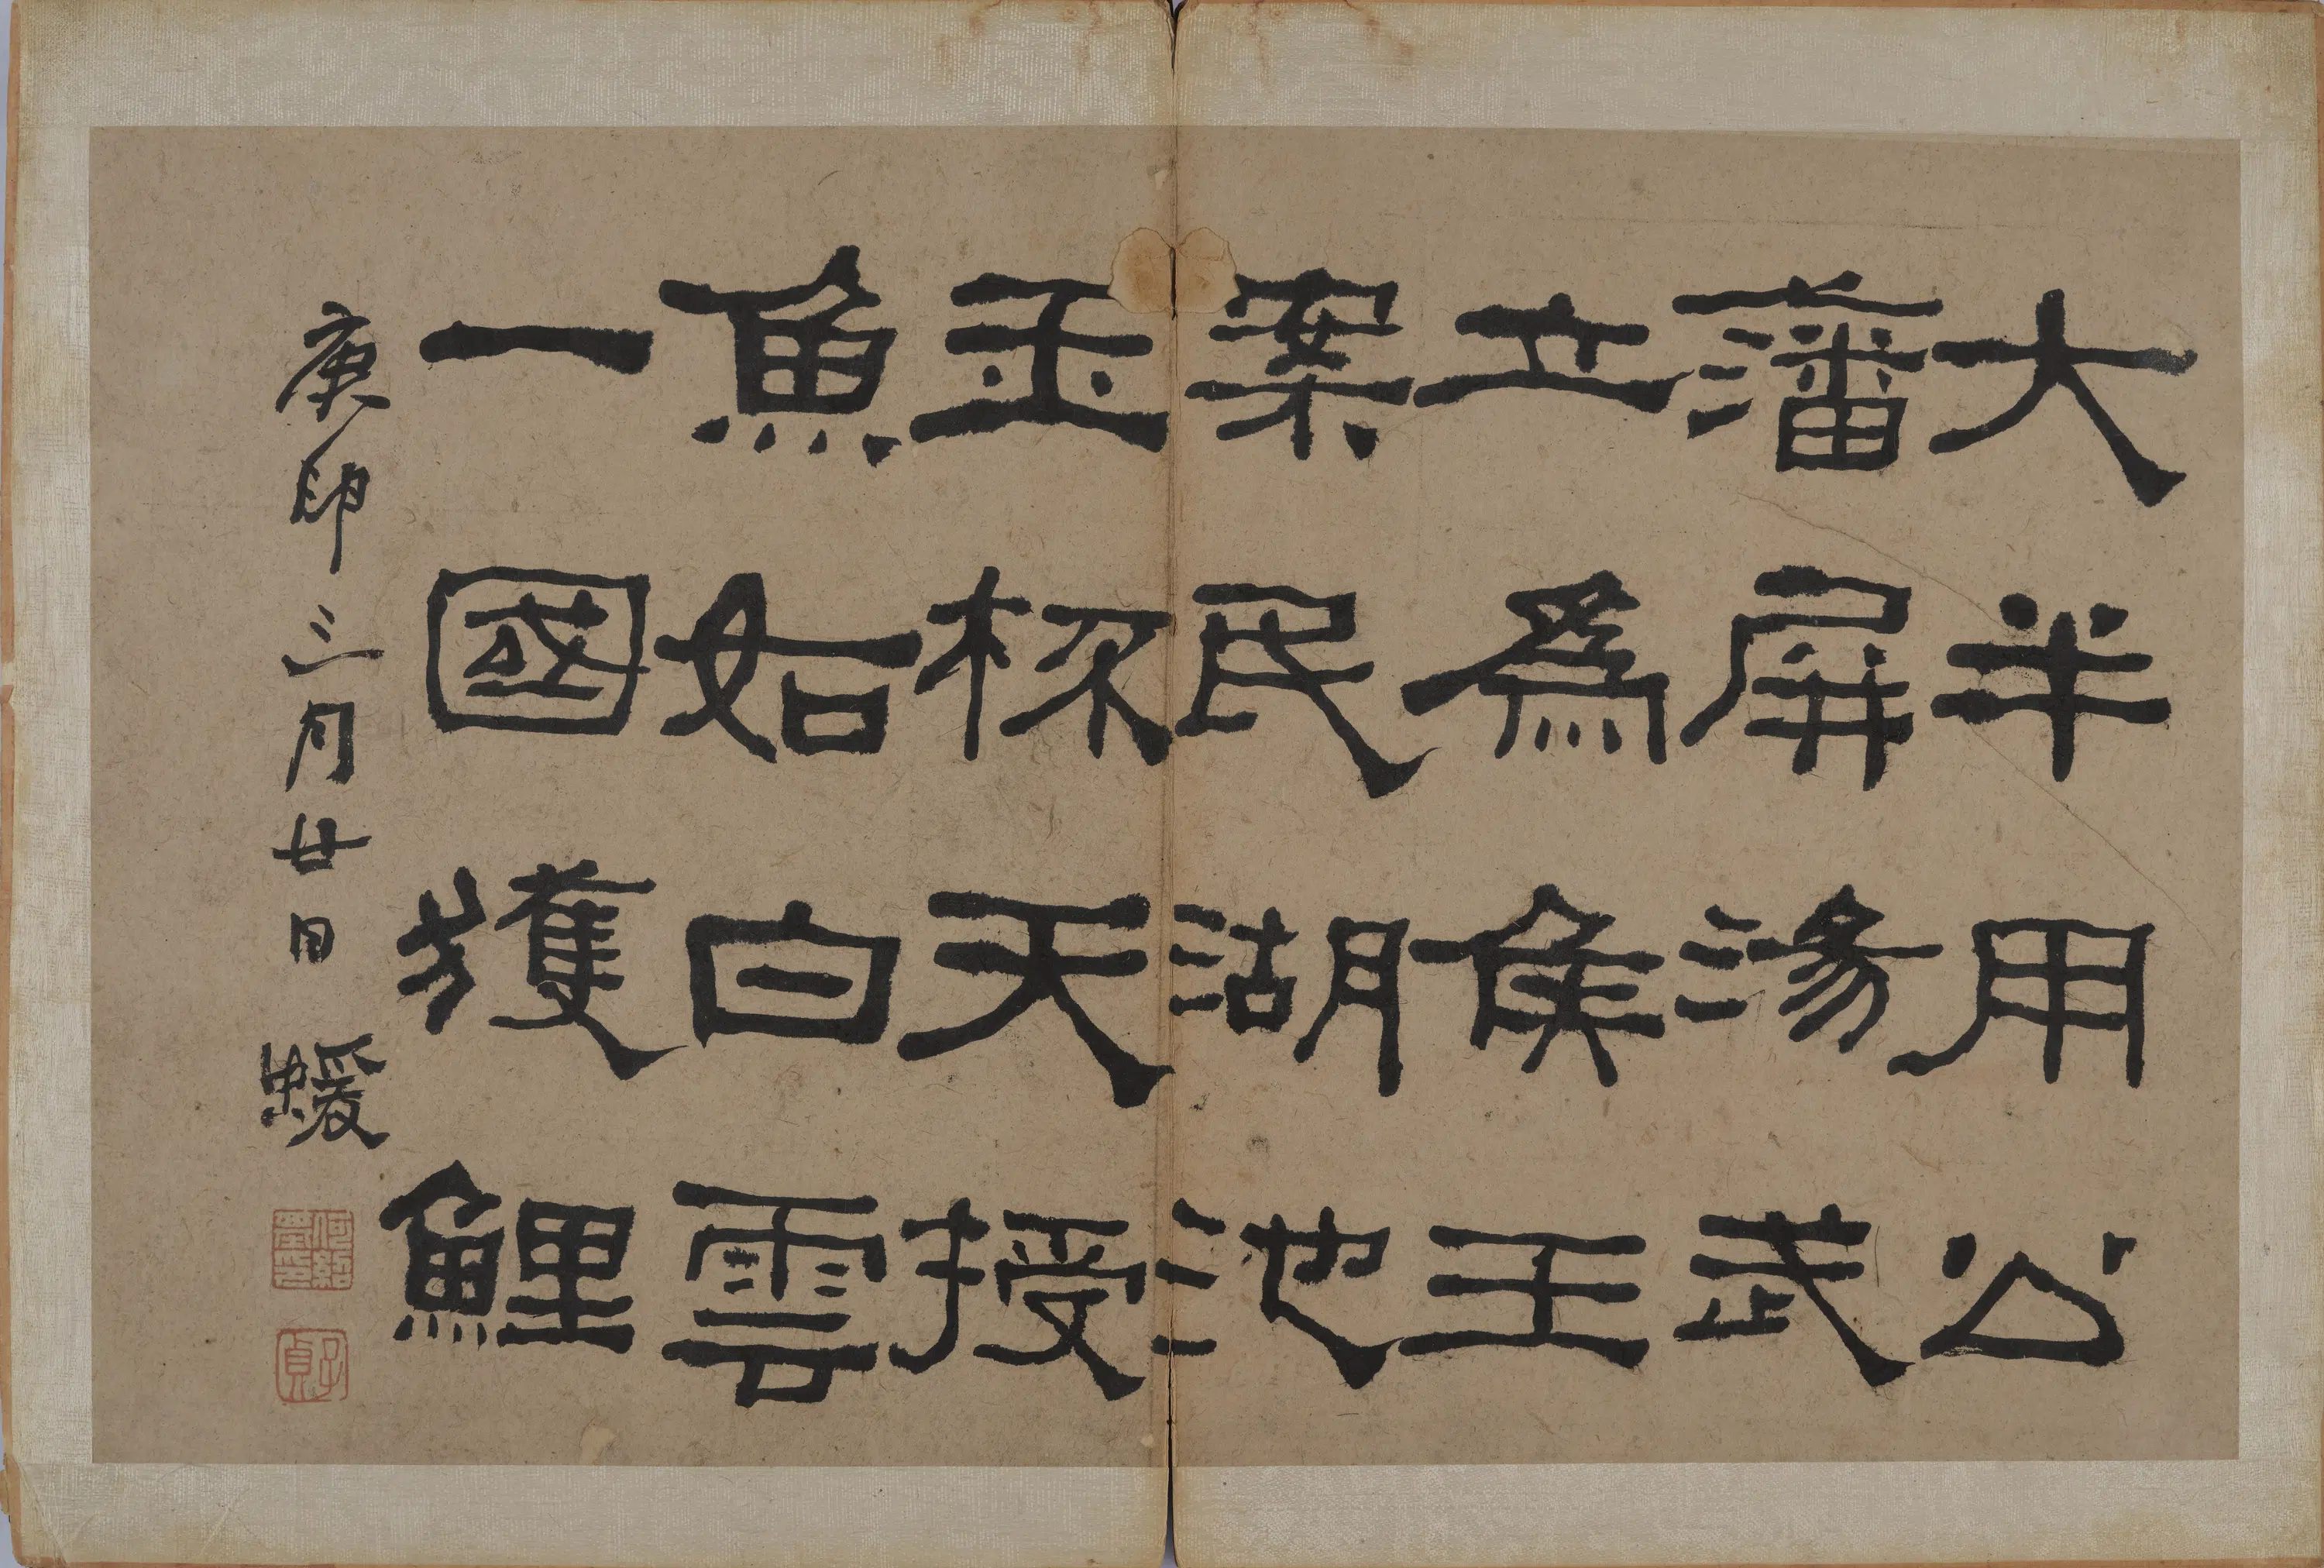 大半用公
藩屏湯武
立爲侯王
案民湖池
玉杯天授
魚如白雲
一國獲鯉
庚申三月廿日蝯
何紹基印
子貞